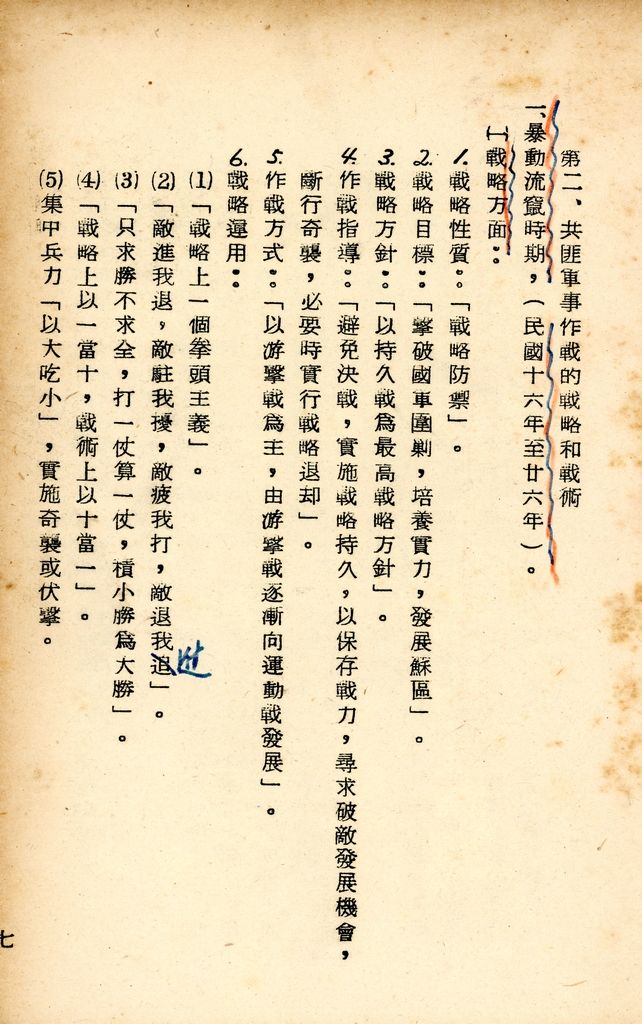 第二、共匪軍事作戰的戰略和戰術
一、暴動流竄時期，（民國十六年至廿六年）。
㈠戰略方面：
1.戰略性質：「戰略防禦」。
2.戰略目標：「擊破國軍圍剿，培養實力，發展蘇區」。
3.戰略方針：「以持久戰爲最高戰略方針」。
4.作戰指導：「避免決戰，實施戰略持久，以保存戰力，尋求破敵發展機會，
斷行奇襲，必要時實行戰略退却」。
5.作戰方式：「以游擊戰爲主，由游擊戰逐漸向運動戰發展」。
6.戰略運用：
(1)「戰略上一個拳頭主義」。
(2)「敵進我退，敵駐我擾，敵疲我打，敵退我追」。
(3)「只求勝不求全，打一仗算一仗，積小勝爲大勝」。
(4)「戰略上以一當十，戰術上以十當一」。
(5)集中兵力「以大吃小」，實施奇襲或伏擊。
七